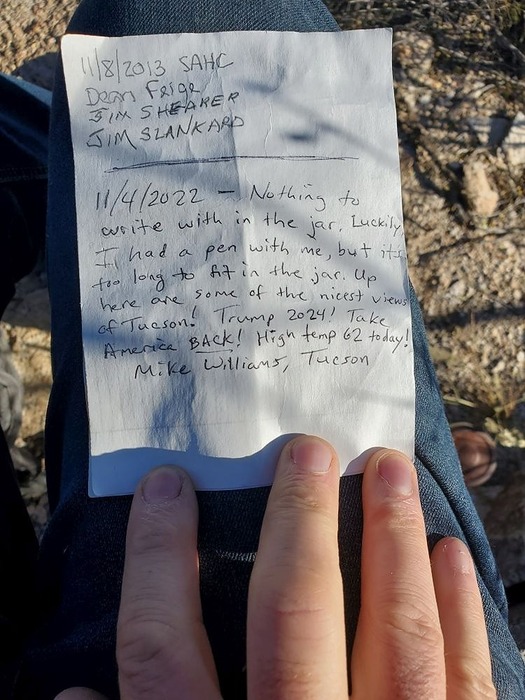 11/8/2013 SAHC
Dean Feige
JIM SHEARER
JIM SLANKARD
11/4/2022 — Nothing to
write with in the jar. Luckily,
I had a pen with me, but it's
too long to fit in the jar. Up
here are some of the nicest views
of Tucson! Trump 2024! Take
America BACK! High temp 62 today!
Mike Williams, Tucson